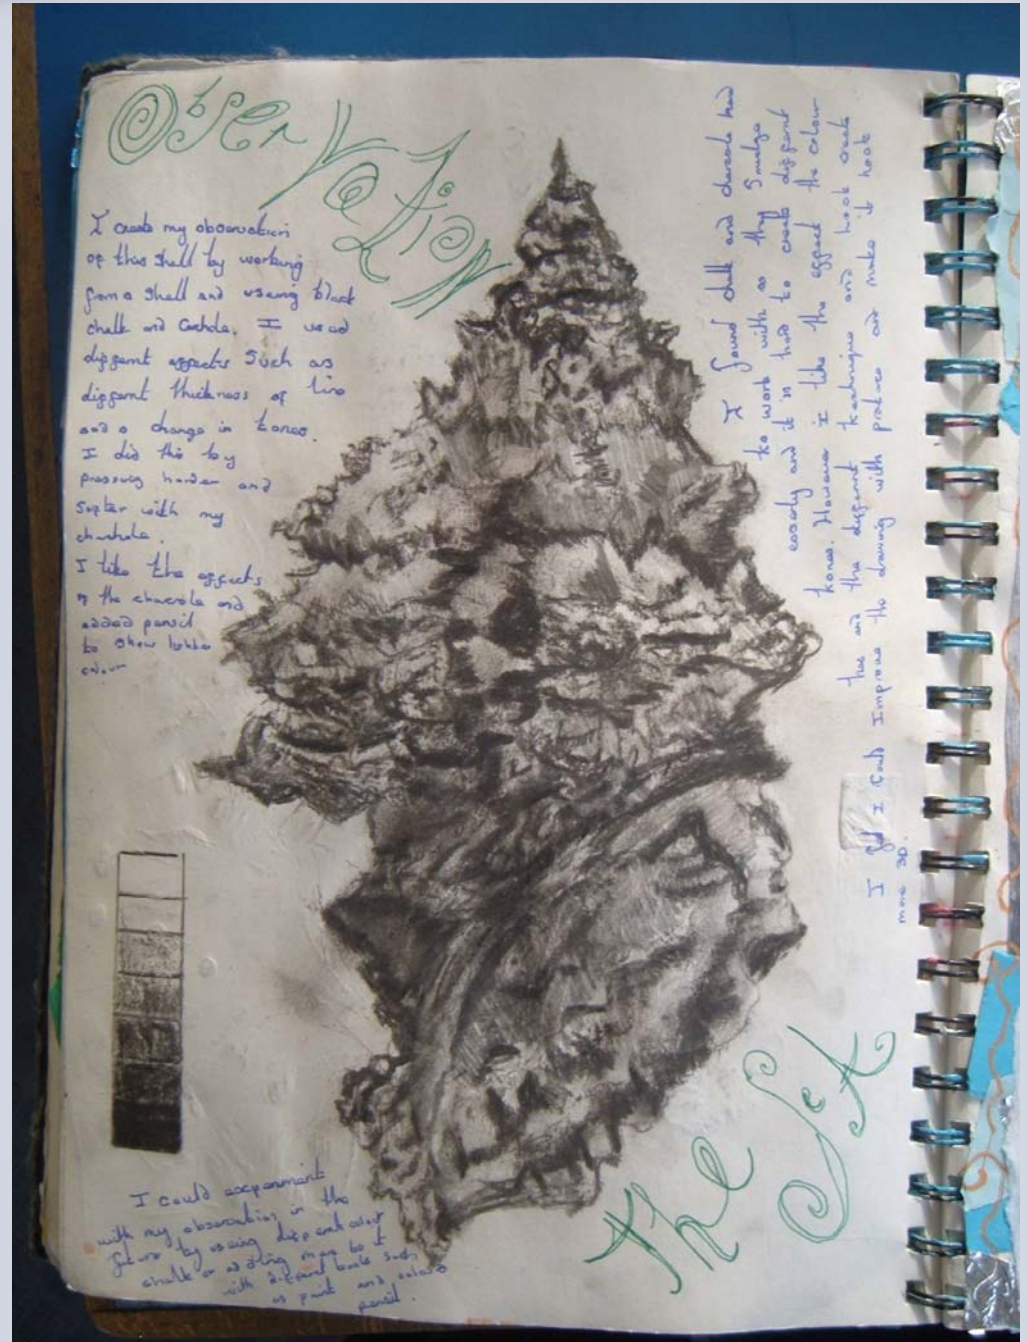 Observation
I create my observation
of this shell by working
from a shell and useing black
chalk and . I used
differnt effects Such as
differnt thickness of line
and a change in tones.
I did this by
pressing harder and
softer with my
I like the effects
of the and
added pencil
to show
colour
I found chalk and hard
to work with as they Smudge
easerly and it is hard to create differnt
tones. However I like the effect the colour
has and the differnt teachniques and look create
I I could Improve the drawing with and make it look
more 3D.
I could expernment
with my observation in the
by useing differnt
chalk or adding to it
with differnt tools such
as paint and
pencil.
The SeA